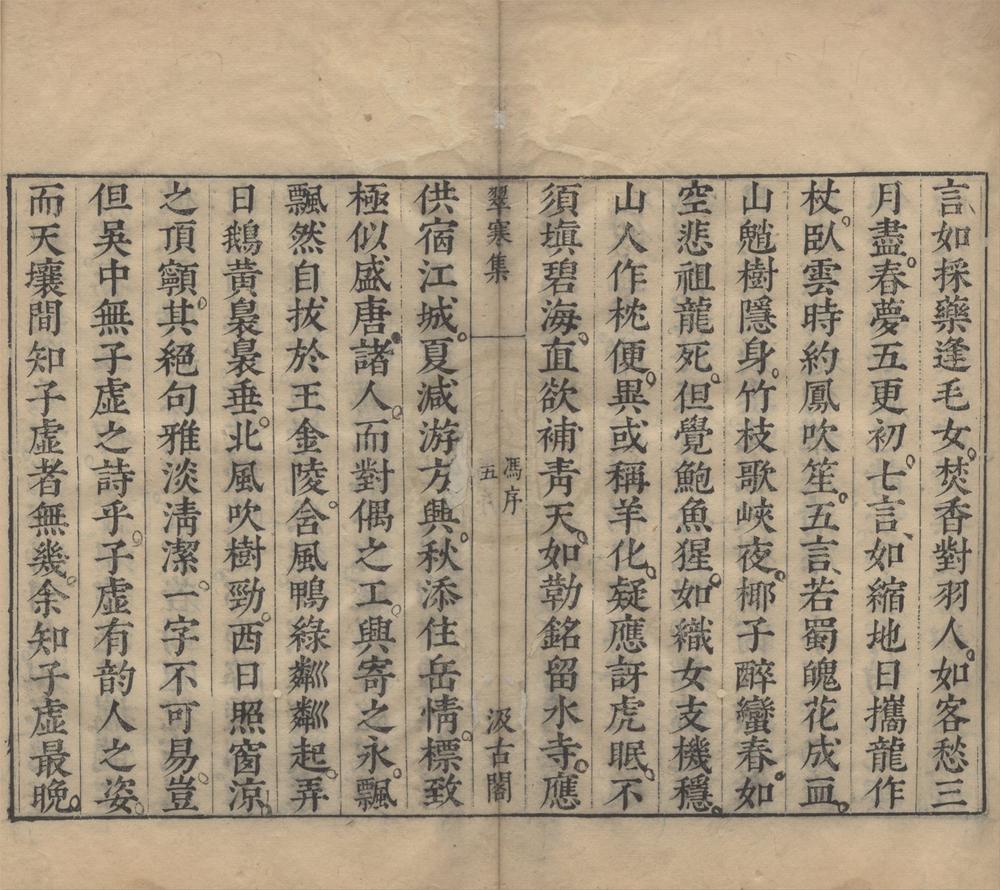 言、如採藥逢毛女。焚香對羽人。如客愁三
月盡。春夢五更初。七言、如縮地日攜龍作
杖。臥雲時約鳳吹笙。五言、若蜀魄花成血。
山魈樹隱身。竹枝歌峽夜。椰子醉蠻春。如
空悲祖龍死。但覺鮑魚猩。如織女支機穩。
山人作枕便。異或稱羊化。疑應訝虎眠。不
須塡碧海。直欲補靑天。如勒銘留水寺。應
翠寒集
馮序
五
汲古閣
供宿江城。夏減游方興。秋添住岳情。標致
極似盛唐。諸人。而對偶之工。興寄之永。飄
飄然自拔於王金陵。含風鴨綠粼粼起。弄
日鵝黃裊裊垂。北風吹樹勁。西日照窗涼。
之頂𩕳。其絕句雅淡淸潔。一字不可易。豈
但吳中無子虛之詩乎。子虛有韵人之姿。
而天壤間知子虛者無幾。余知子虛最晚。